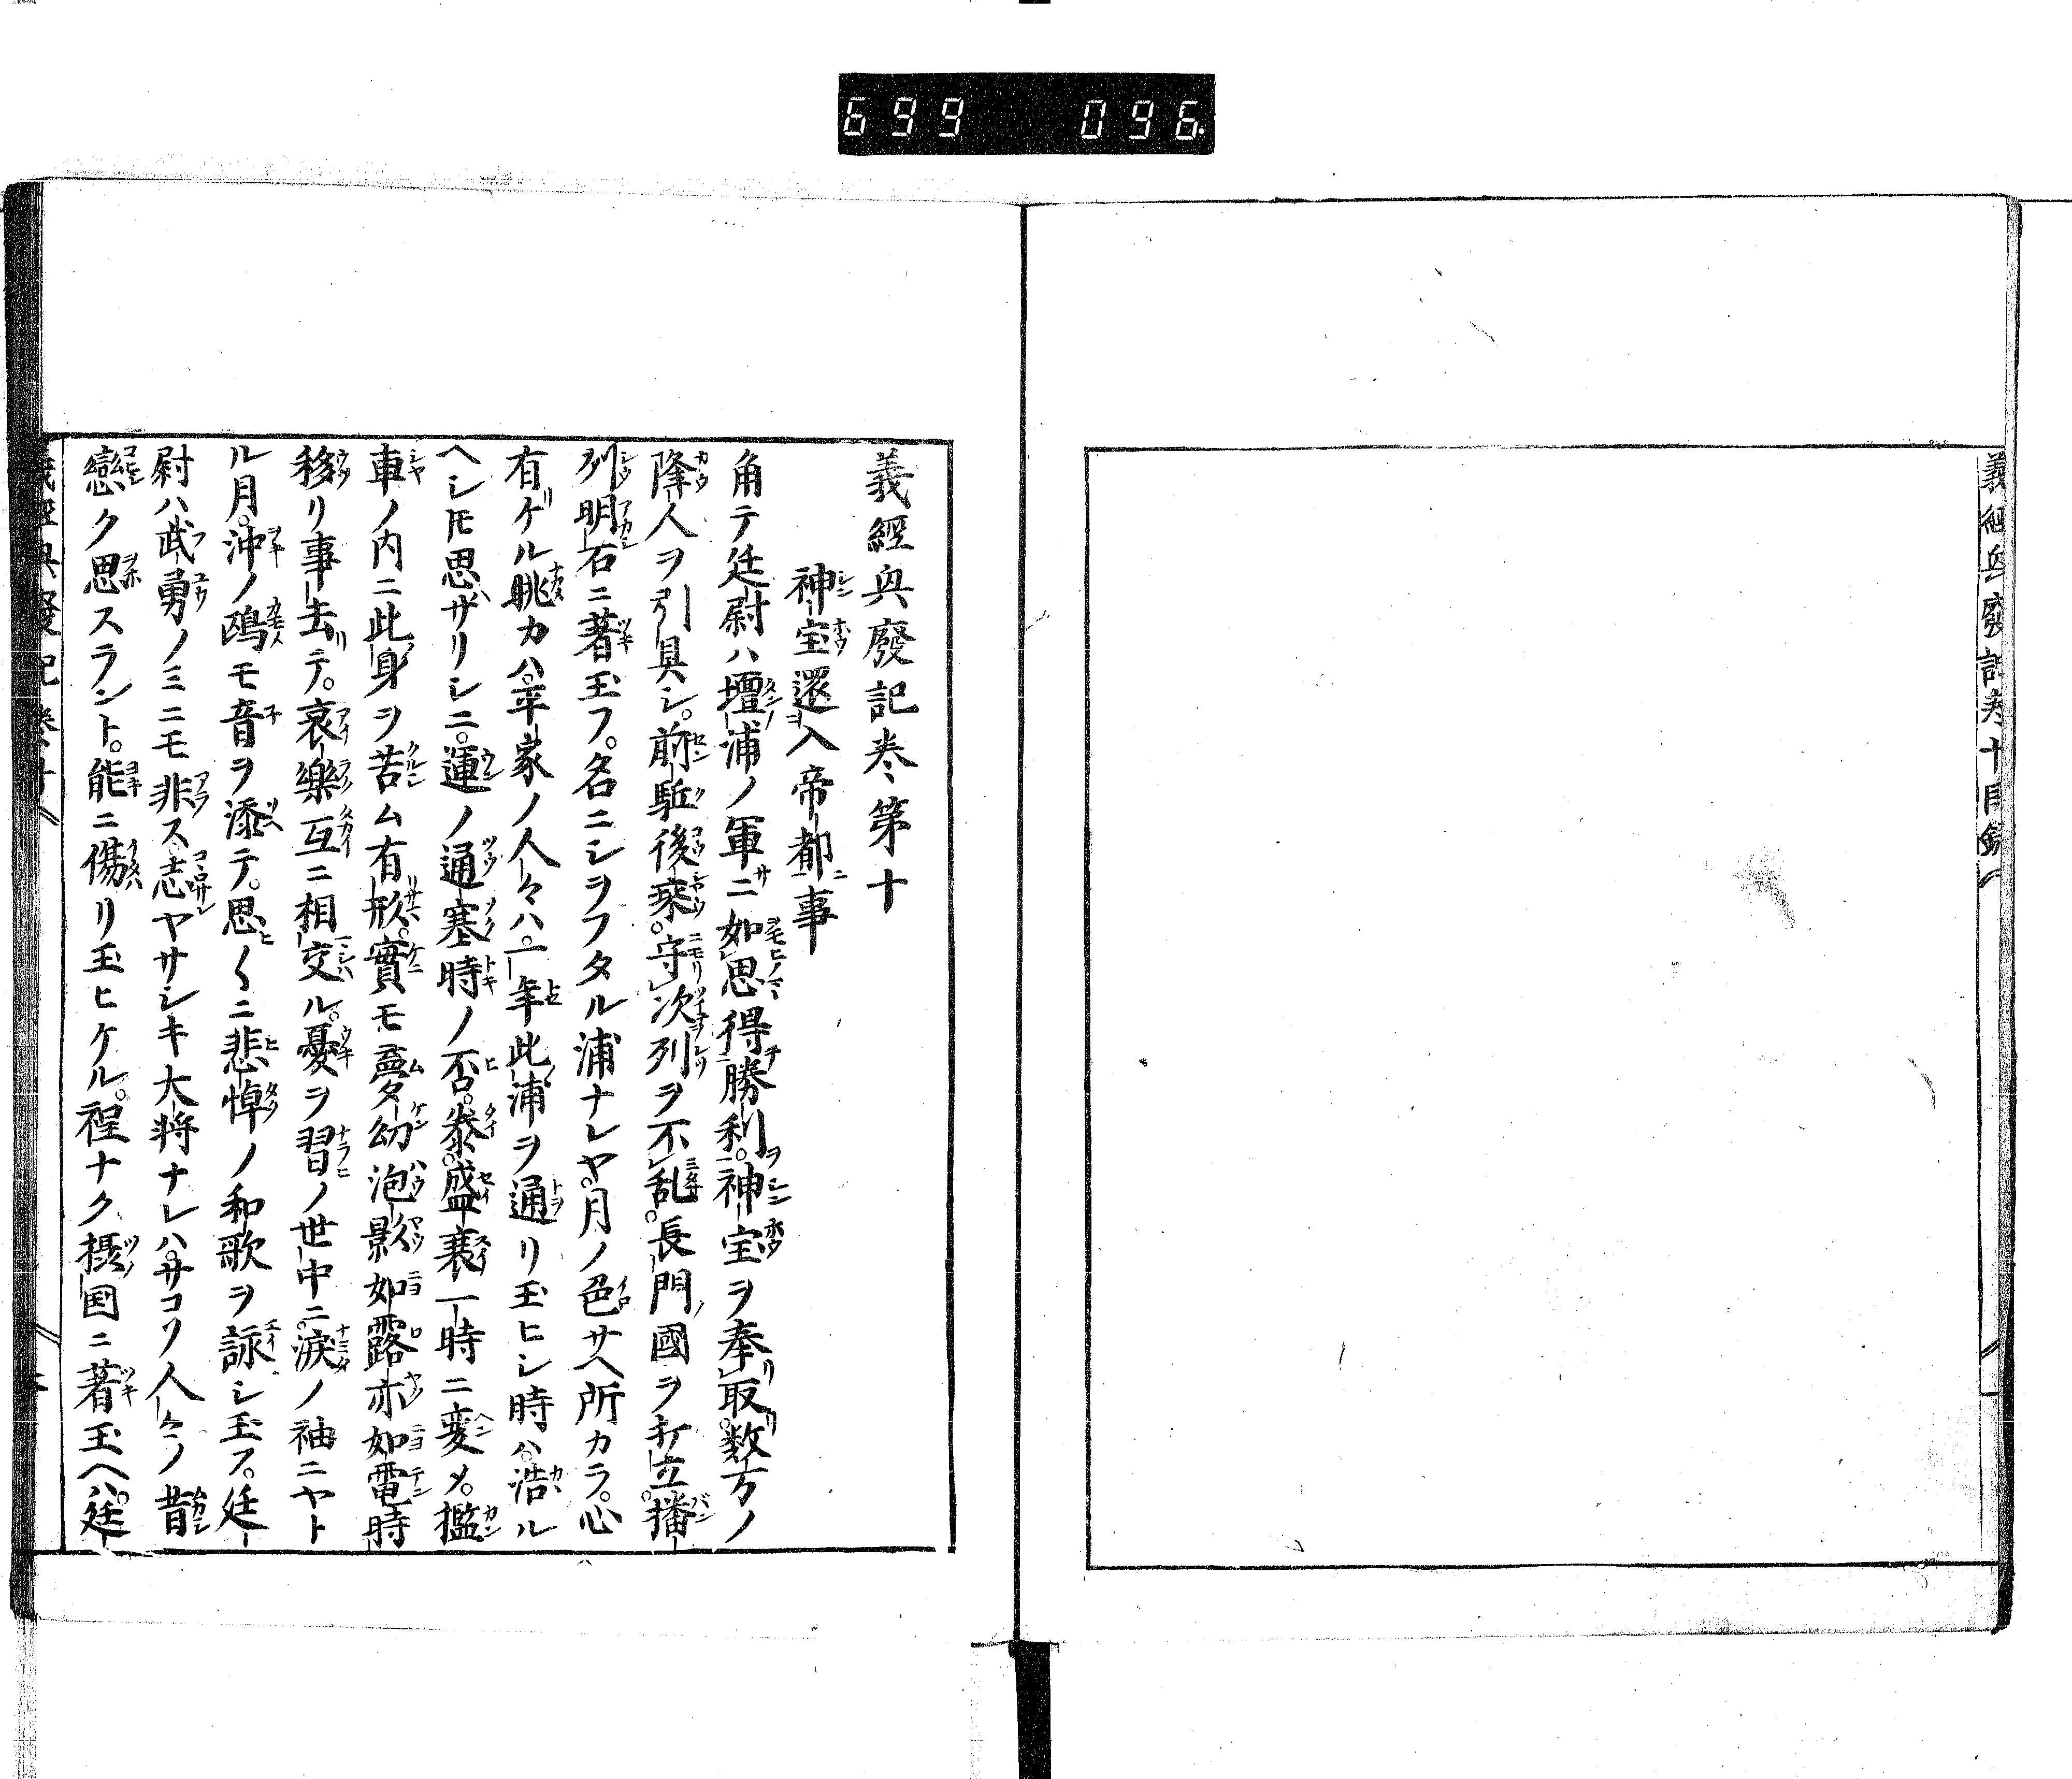 699 096
義經興廢記卷十目録
義經興廢記巻第十
神宝還入帝都事
角テ廷尉ハ壇浦ノ軍ニ如思得勝利。神宝ヲ奉取。数万ノ
降人ヲ引具シ。前駈後乗。守次列ヲ不乱。長門國ヲ打立。播
州明石ニ著玉フ。名ニシヲフタル浦ナレヤ。月ノ色サヘ所カラ。心
有ゲル眺カハ。平家ノ人々ハ。一年此浦ヲ通リ玉ヒシ時ハ。浩ル
ヘシトモ思ザリシニ。運ノ通塞時ノ否泰。盛衰一時ニ変メ。檻
車ノ内ニ此身ヲ苦ム有形。實モ夢幻泡影如露亦如電時
移リ事去テ。哀樂互ニ相交ル。憂ヲ習ノ世中ニ。涙ノ袖ニヤト
ル月。沖ノ鴎モ音ヲ添テ。思〱ニ悲悼ノ和歌ヲ詠シ玉フ。廷
尉ハ武勇ノミニモ非ス志ヤサシキ大将ナレハ。サコソ人々ノ昔
戀ク思スラント。能ニ傷リ玉ヒケル。程ナク摂国ニ著玉ヘハ。廷
義經興廢記巻十